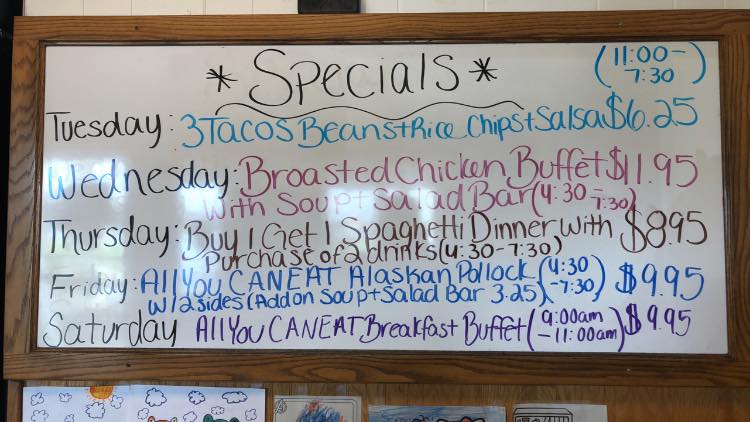 * Specials * (11:00-
7:30)
Tuesday: 3 Tacos Beans + Rice Chips + Salsa $6.25
Wednesday: Broasted Chicken Buffet $11.95
with Soup + Salad Bar (4:30-7:30)
Thursday: Buy 1 Get 1 Spaghetti Dinner with $8.95
Purchase of 2 drinks (4:30-7:30)
Friday: All You CAN EAT Alaskan Pollock (4:30 $9.95
W/2 sides (Add on Soup + Salad Bar 3.25) -7:30)
Saturday All You CAN EAT Breakfast Buffet (9:00am $9.95
-11:00am)